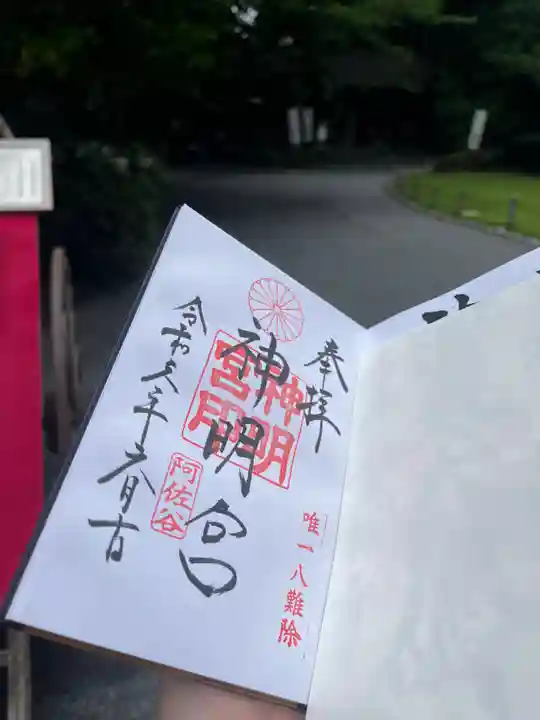 奉拝
唯一八難除
神明宮
神明
宮印
阿佐谷
令和六年